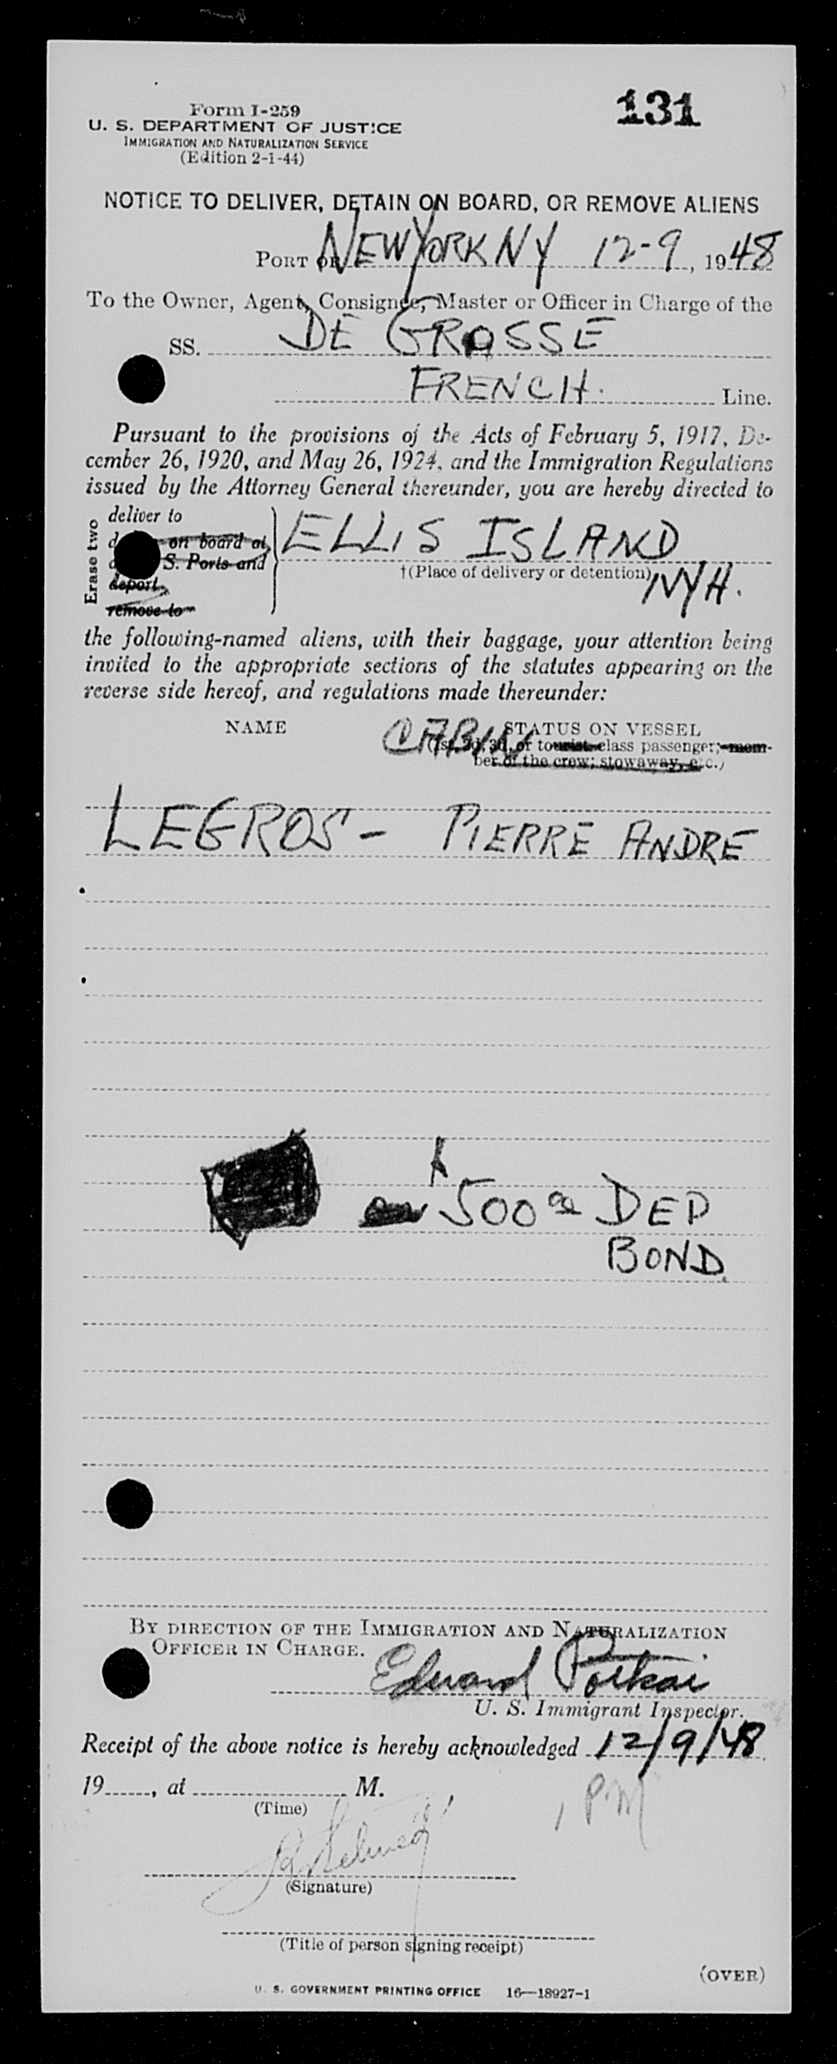 131
Form I-259
U. S. DEPARTMENT OF JUSTICE
IMMIGRATION AND NATURALIZATION SERVICE
(Edition 2-1-44)
NOTICE TO DELIVER, DETAIN ON BOARD, OR REMOVE ALIENS
PORT OF NEW YORK NY 12-9, 1948
To the Owner, Agent, Consignee, Master or Officer in Charge of the
SS. DE GRASSE
FRENCH. Line.
Pursuant to the provisions of the Acts of February 5, 1917, De-
cember 26, 1920, and May 26, 1924, and the Immigration Regulations
issued by the Attorney General thereunder, you are hereby directed to
Erase two
deliver to
on board at
S. Ports and
deport,
remove to
ELLIS ISLAND
†(Place of delivery or detention)
NYH.
the following-named aliens, with their baggage, your attention being
invited to the appropriate sections of the statutes appearing on the
reverse side hereof, and regulations made thereunder:
NAME STATUS ON VESSEL
CABIN
(1st, 2d, 3d, or tourist-class passenger; mem-
ber of the crew; stowaway, etc.)
LEGROS - PIERRE ANDRE
$500 00 DEP
BOND.
BY DIRECTION OF THE IMMIGRATION AND NATURALIZATION
OFFICER IN CHARGE.
Edward
U. S. Immigrant Inspector.
Receipt of the above notice is hereby acknowledged 12/9/48
19____, at ____ M.
(Time)
1 PM
(Signature)
(Title of person signing receipt)
(OVER)
U. S. GOVERNMENT PRINTING OFFICE 16—18927-1